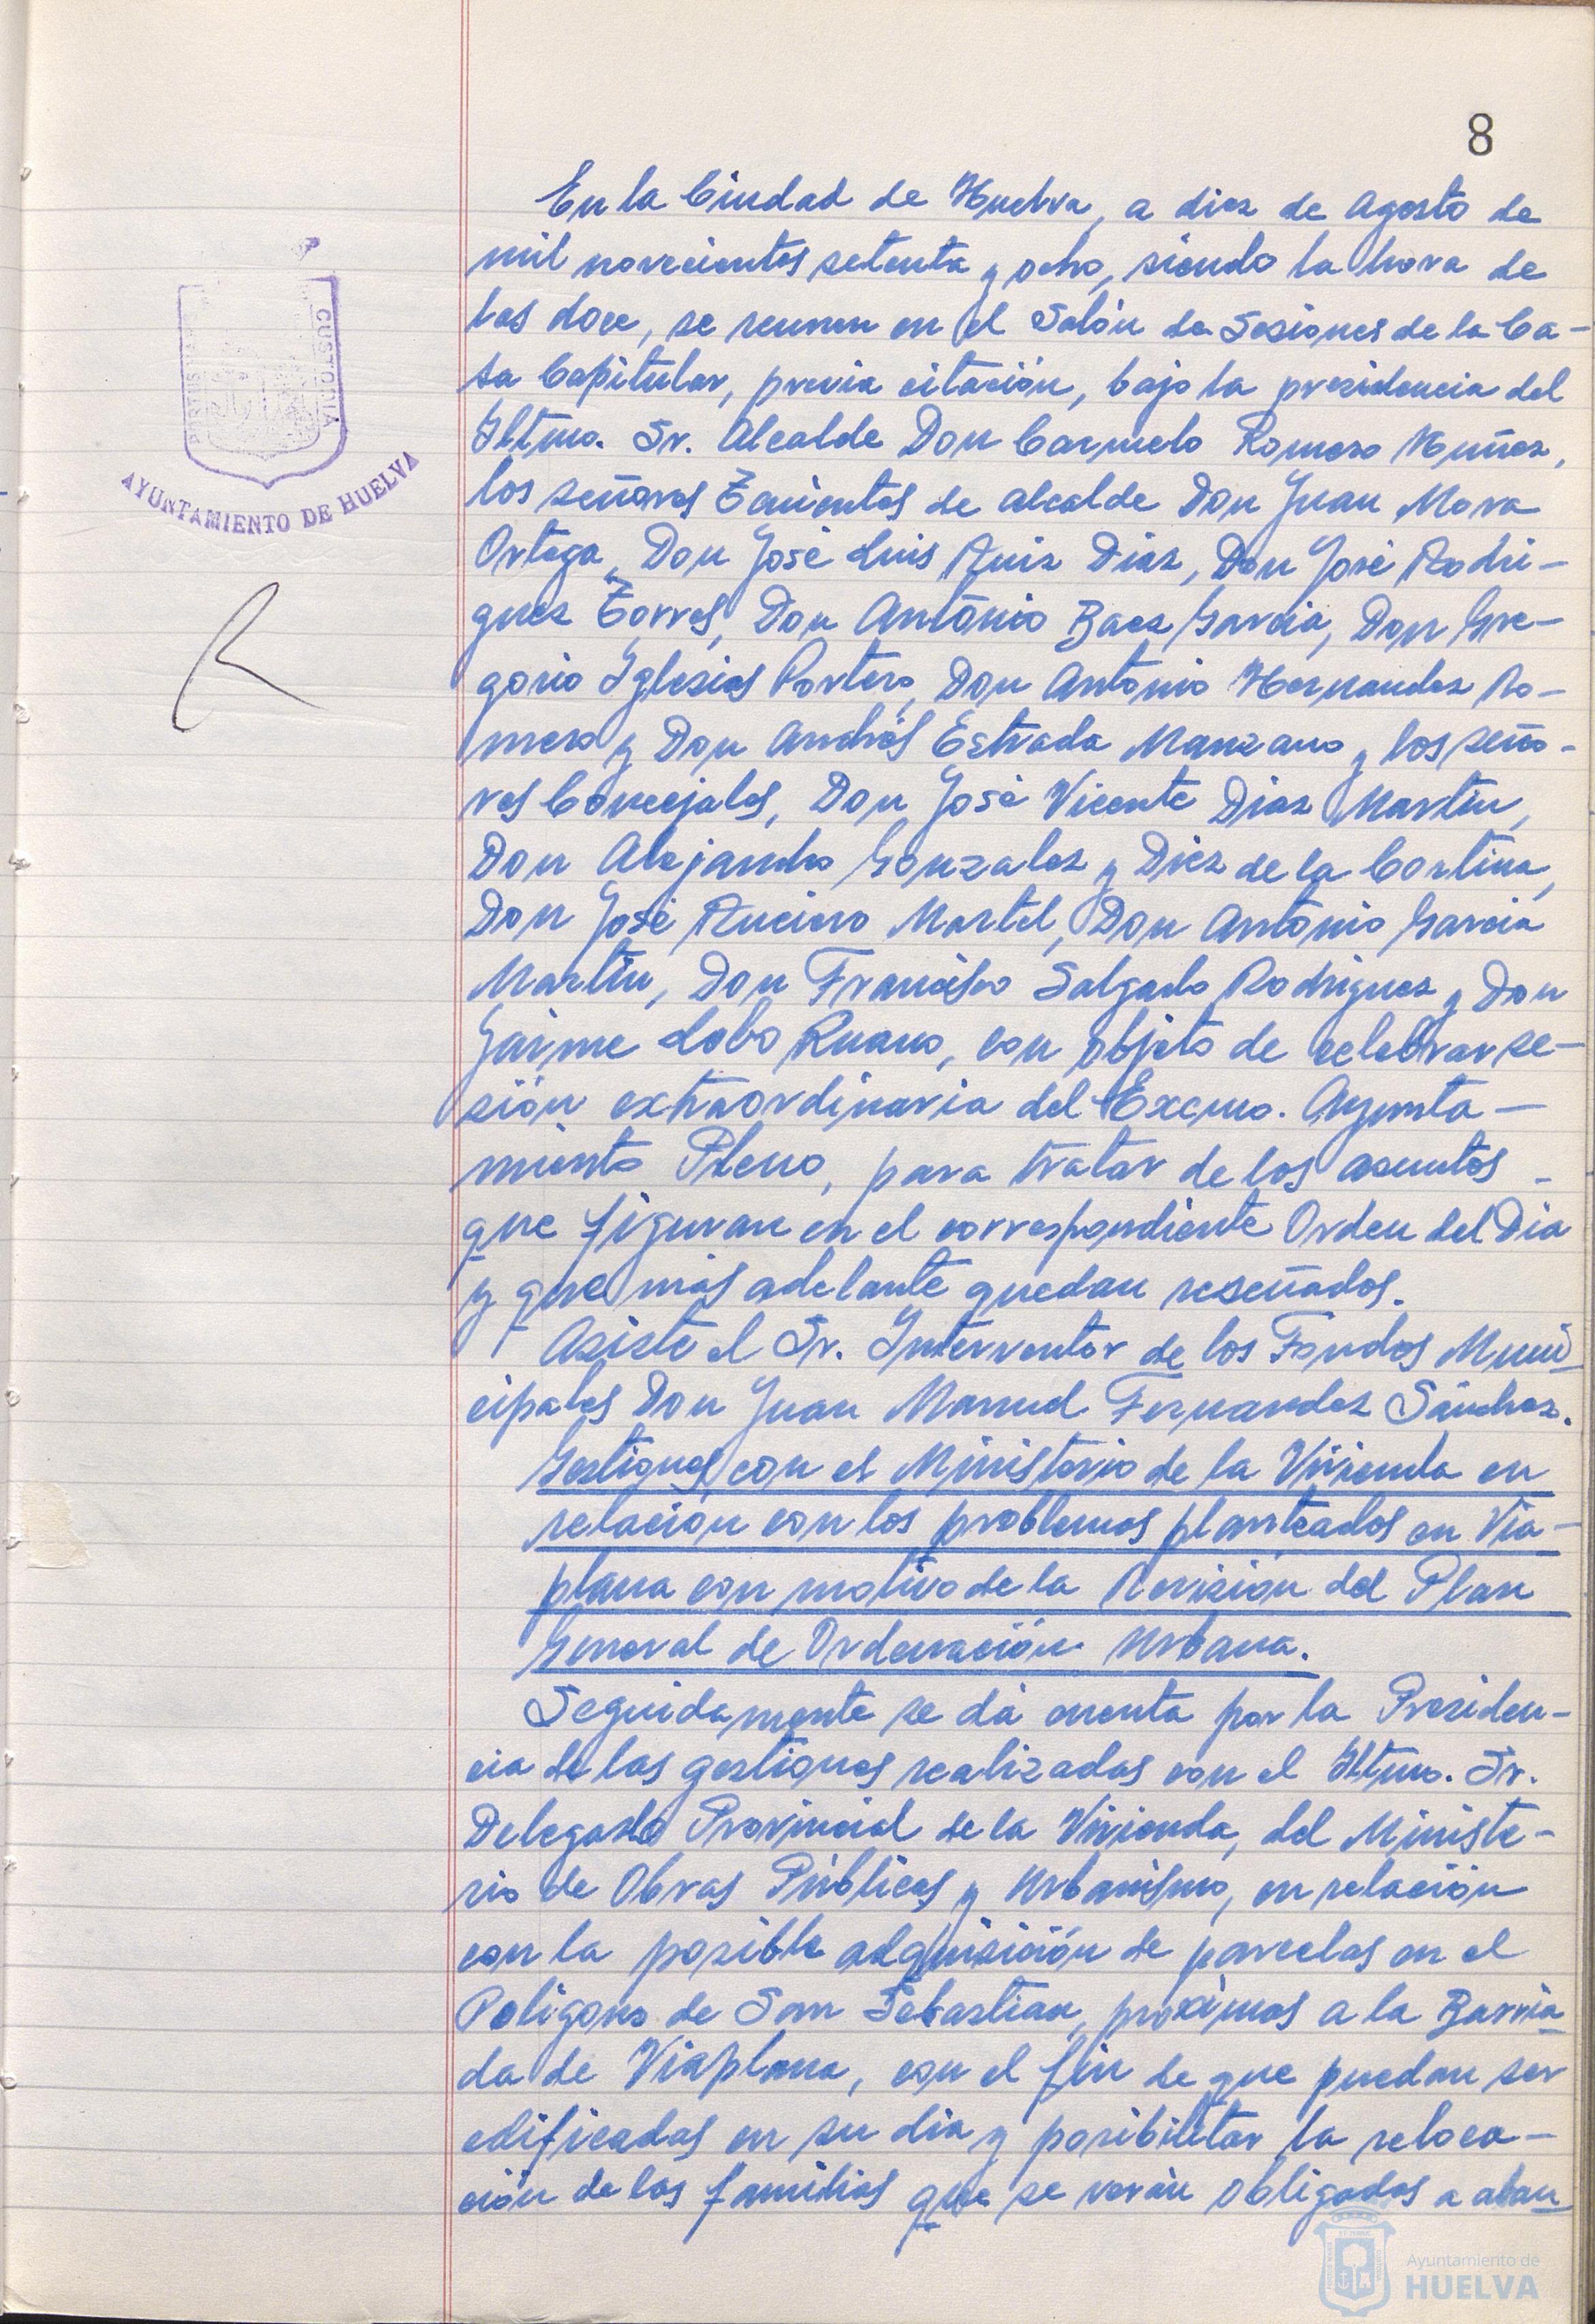 8
En la Ciudad de Huelva, a diez de Agosto de
mil novecientos setenta y ocho, siendo la hora de
las doce, se reunen en el Salón de Sesiones de la Ca-
sa Capitular, previa citación, bajo la presidencia del
Iltmo. Sr. Alcalde Don Carmelo Romero Núñez,
los señores Tenientes de Alcalde Don Juan Mora
Ortega, Don José Luis Ruiz Diaz, Don José Rodri-
guez Torres, Don Antonio Baez Garcia, Don Gre-
gorio Iglesias Portero, Don Antonio Hernandez Ro-
mero y Don Andrés Estrada Manzano y los seño-
res Concejales, Don José Vicente Diaz Martin,
Don Alejandro Gonzalez y Diez de la Cortina,
Don José Ruciero Martel, Don Antonio Garcia
Martin, Don Francisco Salgado Rodriguez y Don
Jaime Lobo Ruano, con objeto de celebrar se-
sión extraordinaria del Excmo. Ayunta-
miento Pleno, para tratar de los asuntos -
que figuran en el correspondiente Orden del Dia
y que más adelante quedan reseñados.
Asiste el Sr. Interventor de los Fondos Muni
cipales Don Juan Manuel Fernandez Sánchez.
Gestiones con el Ministerio de la Vivienda en
relación con los problemas planteados en Via-
plana con motivo de la Revisión del Plan
General de Ordenación Urbana.
Seguidamente se dá cuenta por la Presiden-
cia de las gestiones realizadas con el Iltmo. Sr.
Delegado Provincial de la Vivienda, del Ministe-
rio de Obras Públicas y Urbanismo, en relación
con la posible adquisición de parcelas en el
Poligono de San Sebastian, proximas a la Barria
da de Viaplana, con el fin de que puedan ser
edificadas en su dia y posibilitar la reloca-
ción de las familias que se verán obligadas a aban
CUSTODIA
AYUNTAMIENTO DE HUELVA
Ayuntamiento de
HUELVA